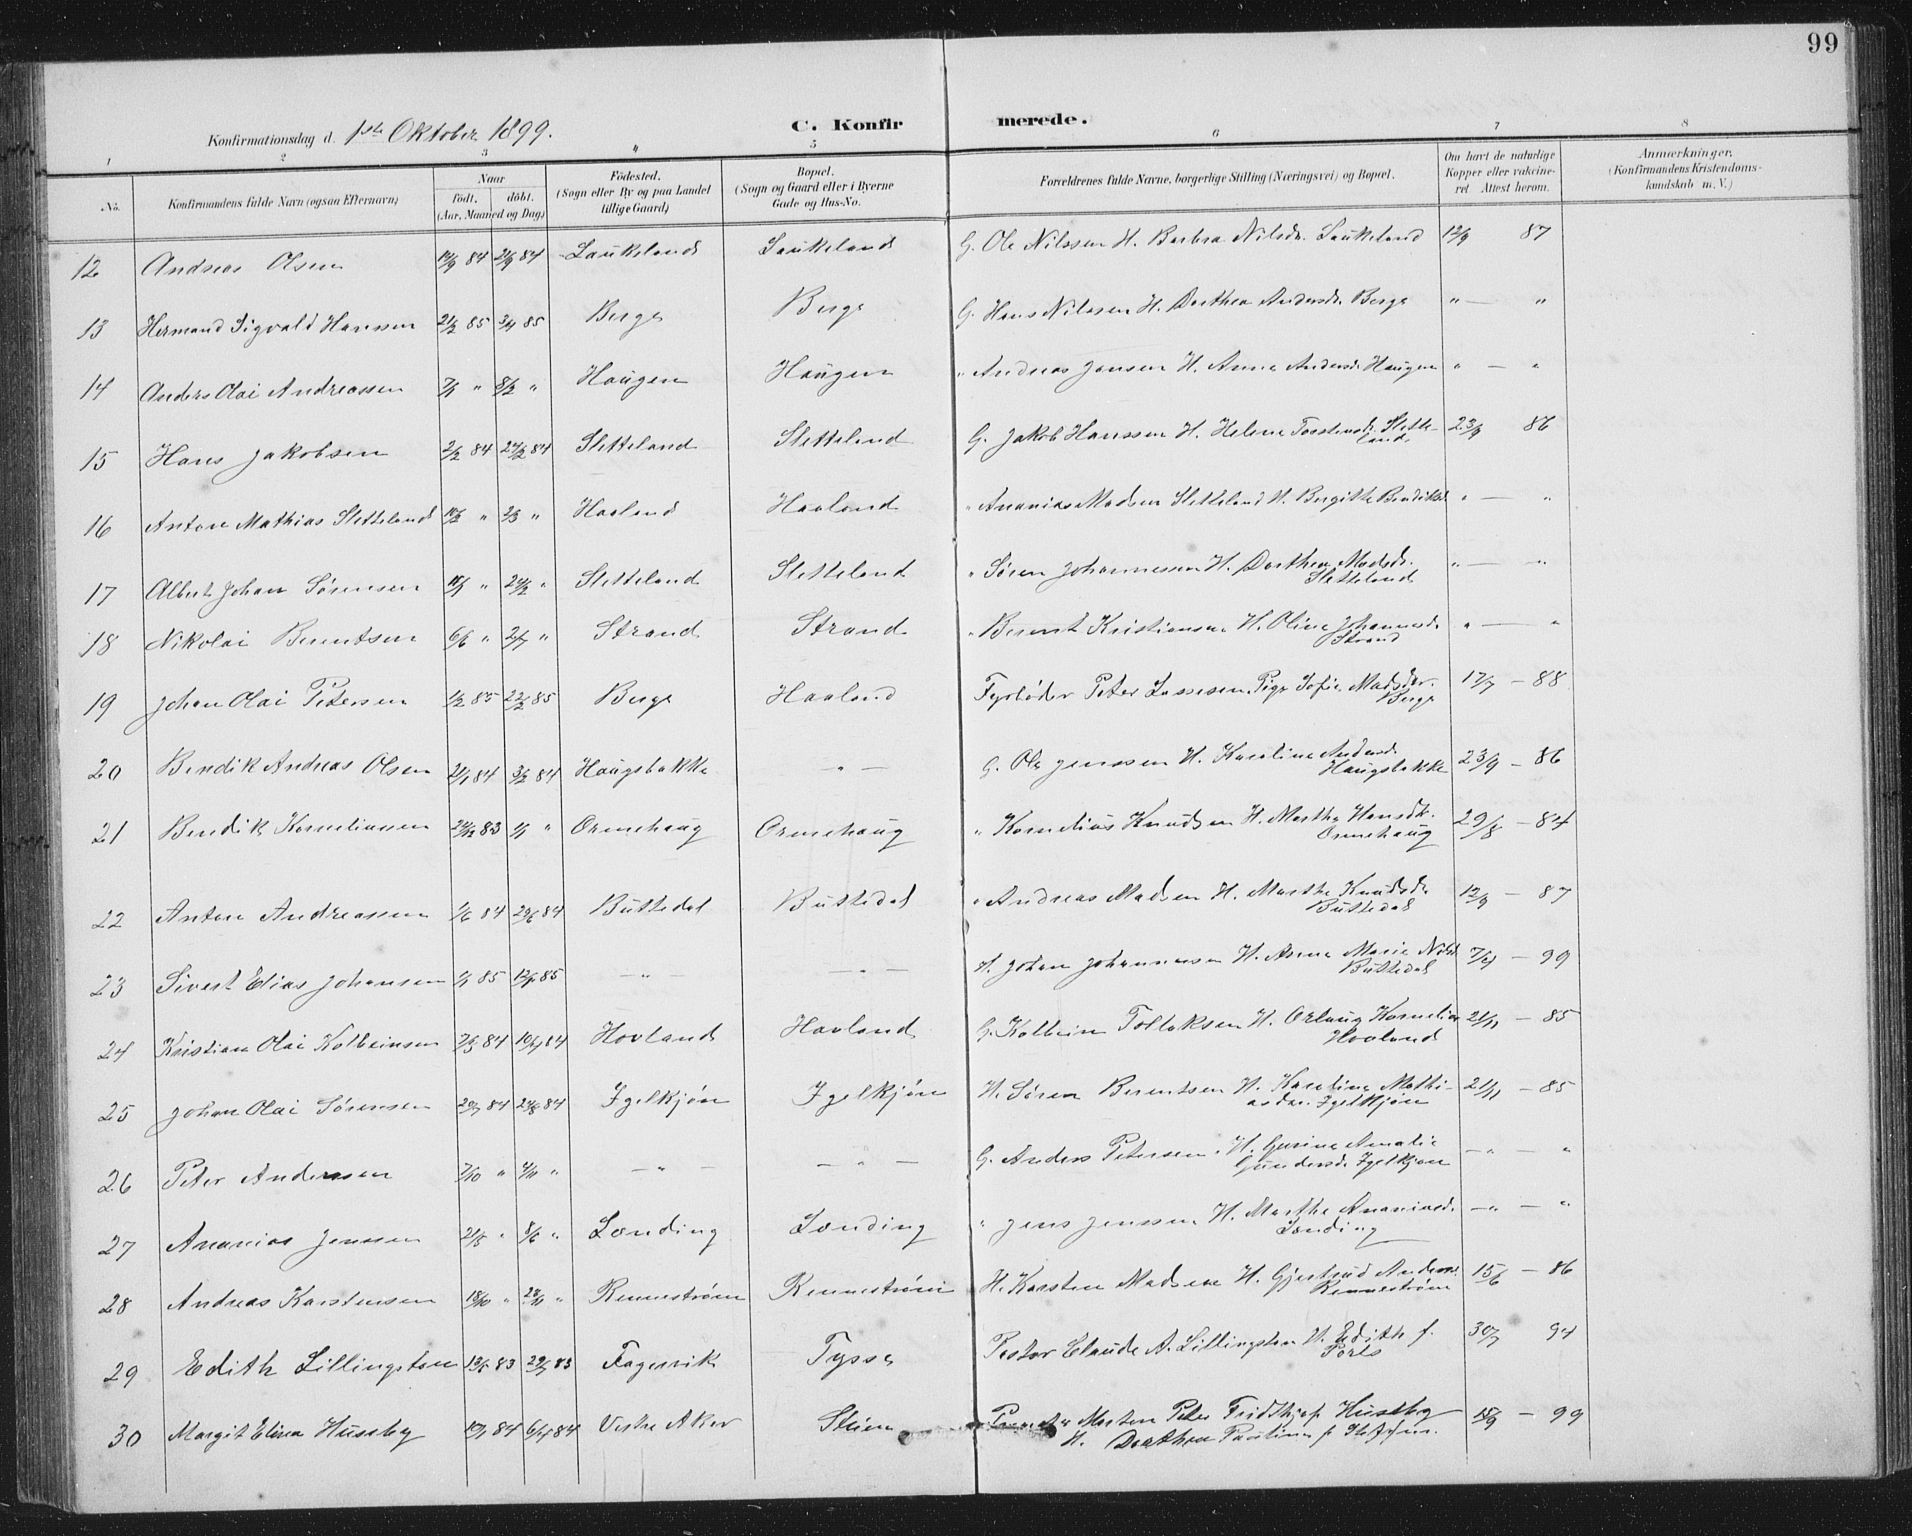 99
Konfirmationsdag d. 1ste Oktober 1899. C. Konfir merede.
1 2 3 4 5 6 7 8
No. Konfirmandens fulde Navn (ogsaa Efternavn) Naar født. døbt. (Aar, Maaned og Dag) Fødested. (Sogn eller By og paa Landet tillige Gaard) Bopæl. (Sogn og Gaard eller i Byerne Gade og Hus-No. Forældrenes fulde Navne, borgerlige Stilling (Næringsvei) og Bopæl. Om havt de naturlige Kopper eller vakcineret Attest herom. Anmærkninger. (Konfirmandens Kristendomskundskab m. V.)
12 Andreas Olsen 84 84 Laukeland Laukeland G. Ole Nilssen H. Barbra Nilsdr. Laukeland 12/9 87
13 Hermand Sigvald Hanssen 21/2 85 3/4 85 Berge Berge G. Hans Nilssen H. Dorthea Andersdr. Berge " — "
14 Anders Olai Andreassen 7/1 " 8/2 " Haugen Haugen " Andreas Jensen H. Anna Andersdr Haugen " — "
15 Hans Jakobsen 2/2 84 24/2 84 Sletteland Sletteland G. Jakob Hanssen H. Helene Torstensdr. Slette-
land 23/9 86
16 Anton Mathias Sletteland 10/2 " 2/3 " Hovland Hovland " Ananias Madsen Sletteland H. Bergitte Bendiksd. " — "
17 Albert Johan Sørensen " 24/2 " Sletteland Sletteland " Søren Johannessen H. Dorthea Madsdr.
Sletteland " — "
18 Nikolai Berentsen 6/6 " 2/7 " Strand Strand " Berent Kristiansen H. Oline Johannesd.
Strand " — "
19 Johan Olai Petersen 1/2 85 22/2 85 Berge Hovland Fyrbøder Peter Lassesen, Pige Sofie Madsdr.
Berge 17/7 — 88
20 Bendik Andreas Olsen 21/1 84 3/2 84 Haugsbakke — " — G. Ole Jenssen H. Karoline Andersd.
Haugsbakke 23/9 — 86
21 Bendik Korneliussen 24/12 83 1/1 " Ormehaug Ormehaug " Kornelius Knudsen H. Martha Hansdtr.
Ormehaug 29/8 — 84
22 Anton Andreassen 1/6 84 29/6 84 Buttedal Buttedal " Andreas Madsen H. Marthe Knudsdr
Buttedal 12/9 — 87
23 Sivert Elias Johansen 1/1 85 12/4 85 — " — — " — H. Johan Johannessen H. Anna Marie Nilsd.
Buttedal 7/4 — 99
24 Kristian Olai Kolbeinsen 84 84 Hovland Hovland G. Kolbein Tollaksen H. Orlaug Kornelia
Hovland 21/11 — 85
25 Johan Olai Sørensen 29/7 84 24/8 84 Igelkjøn Igelkjøn H. Søren Berentsen H. Karoline Mathi-
asdr. Igelkjøn 21/11 — 85
26 Peter Andersen 7/10 " 4/11 " — " — — " — G. Anders Petersen, H. Gurine Amalie
Gundersdr Igelkjøn — " — "
27 Ananias Jenssen 21/5 " 8/6 " Lending Lending " Jens Jenssen H. Marthe Ananiasd.
Lending — " — "
28 Andreas Karstensen 18/10 " 23/11 " Rennestrøm Rennestrøm H. Karsten Madsen H. Gjertrud Andersd.
Rennestrøm 15/6 — 86
29 Edith Lillingston 83 83 Fagervik Tysse Pastor Claude A. Lillingston H. Edith f.
30/7 94
30 Margit Elina Husseby 84 6/4 84 Vestre Aker Steien Morten Peter Fridthjof Husseby
H. Dorthea Pauline f. 15/9 — 99